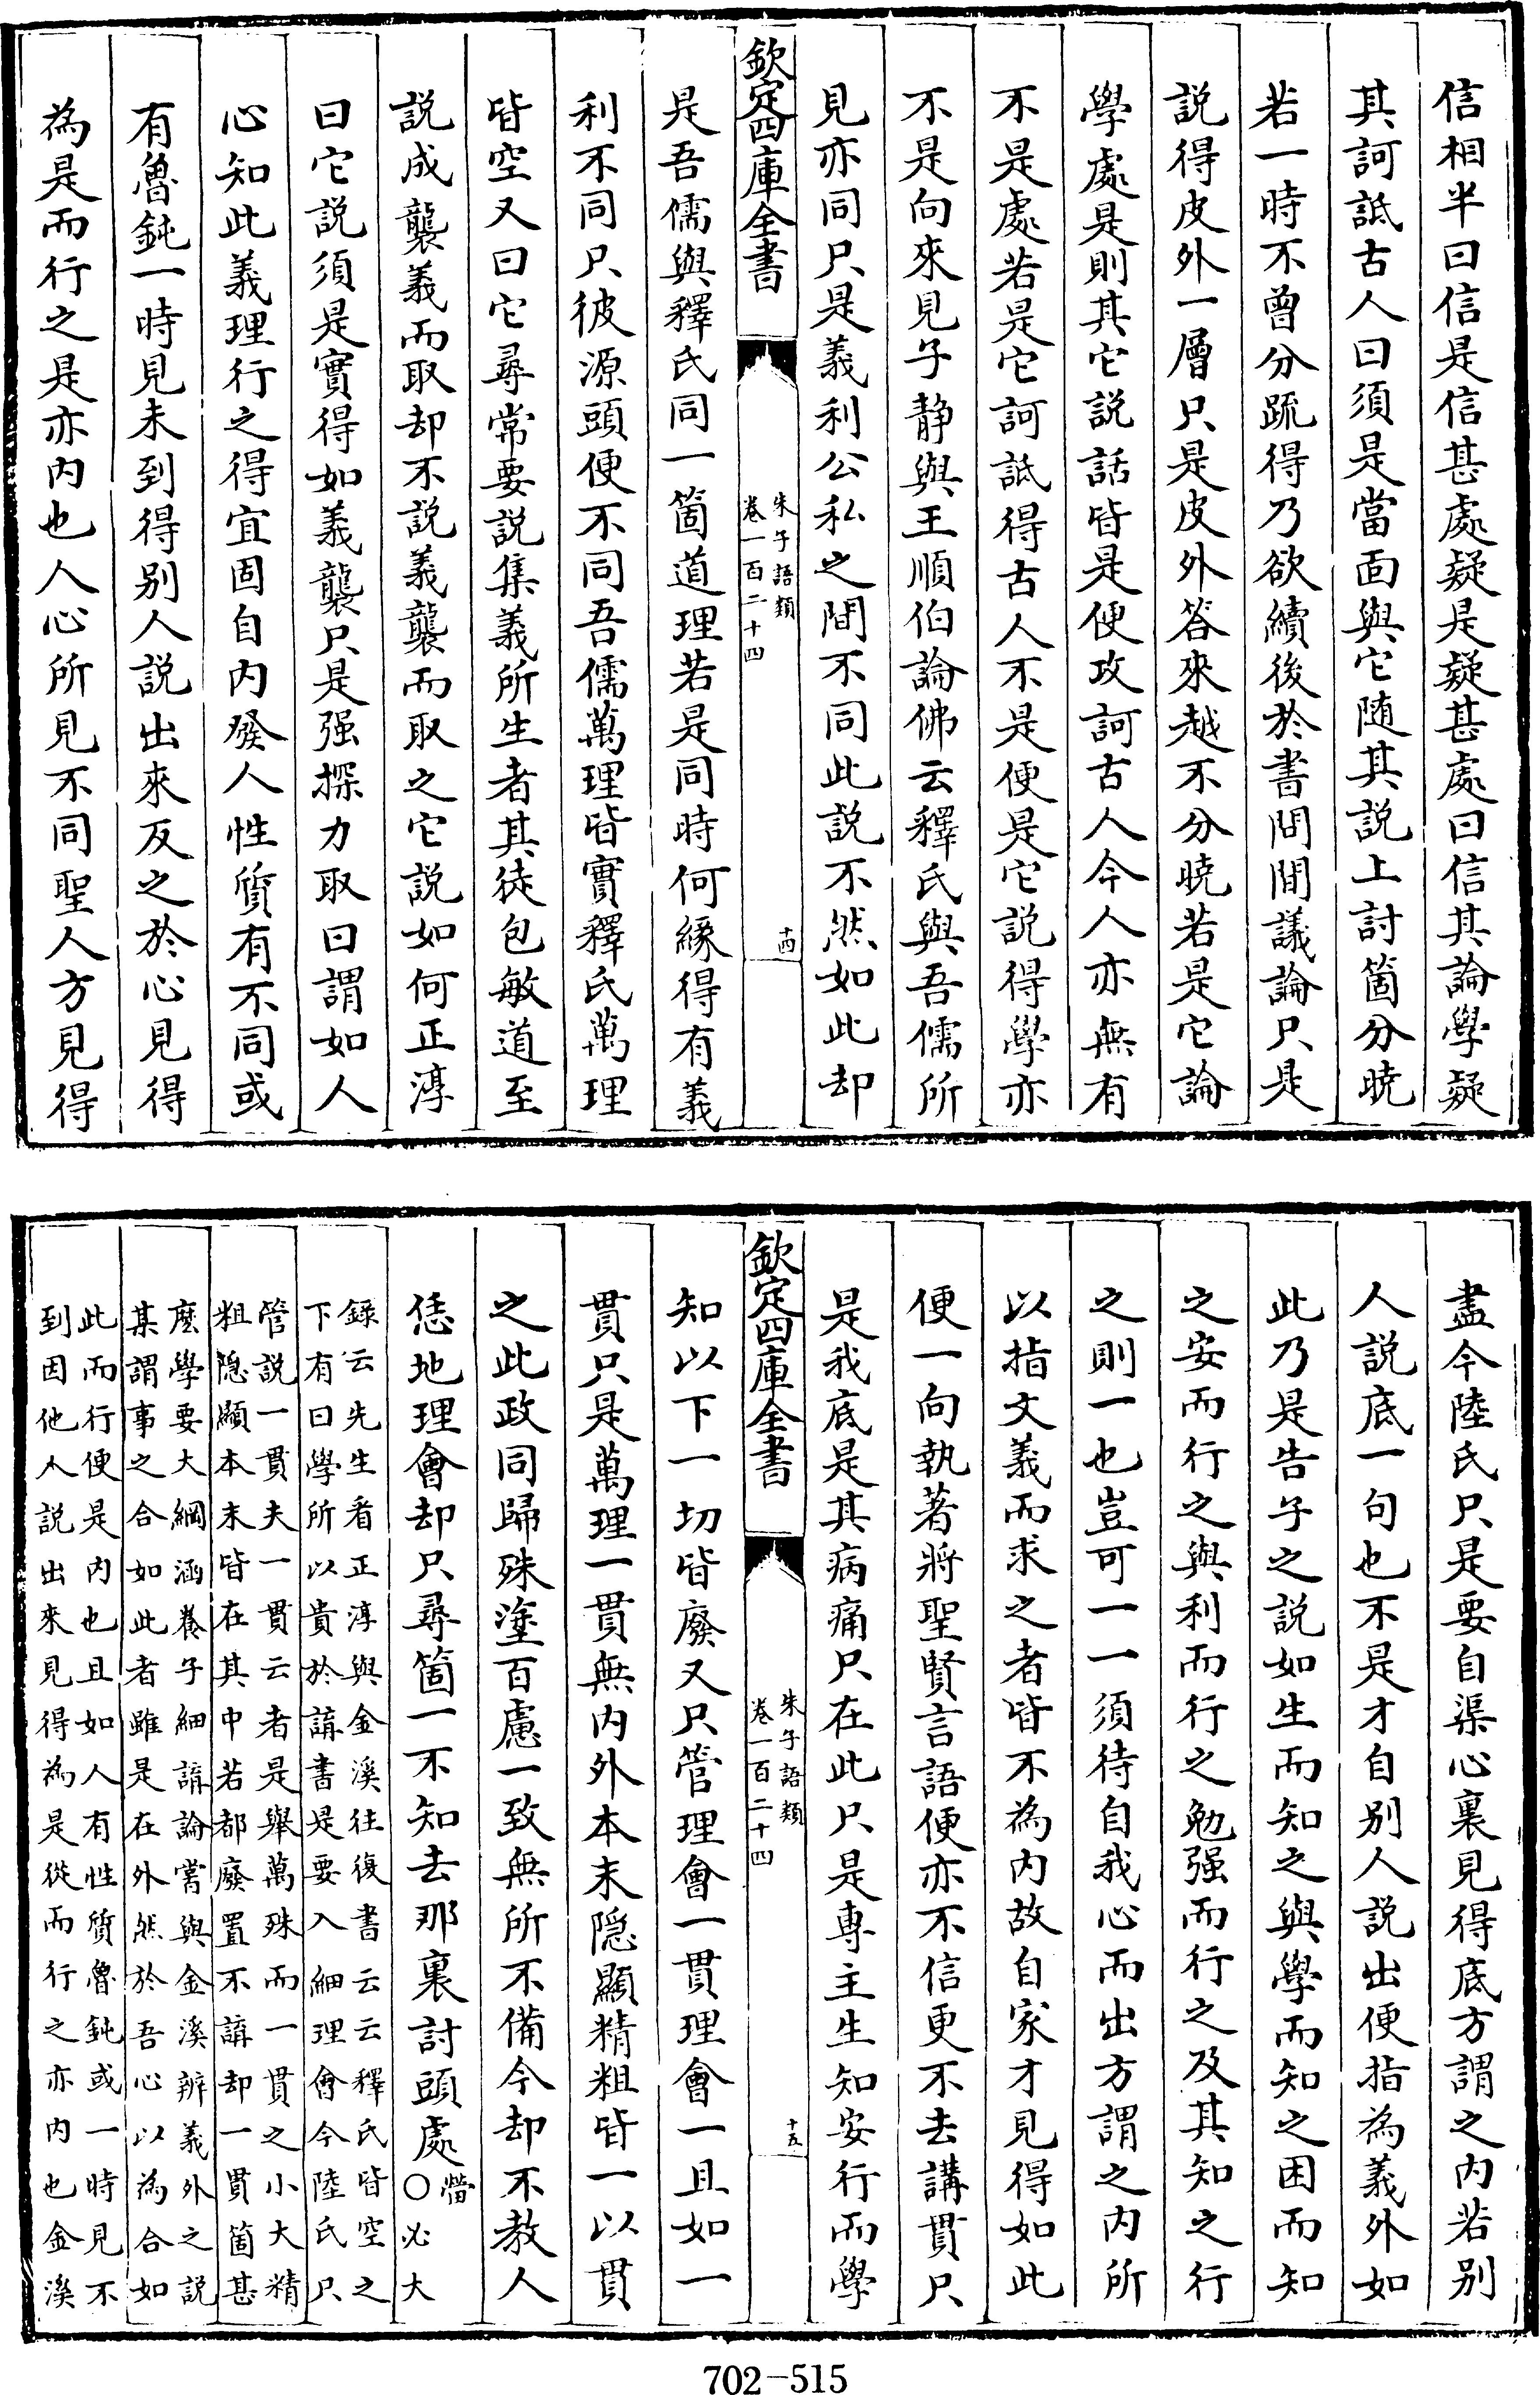 信相半曰信是信甚處疑是疑甚處曰信其論學疑
其訶詆古人曰須是當面與它随其説上討箇分曉
若一時不曾分䟽得乃欲續後於書問間議論只是
説得皮外一層只是皮外答來越不分曉若是它論
學處是則其它説話皆是便攻訶古人今人亦無有
不是處若是它訶詆得古人不是便是它説得學亦
不是向來見子静與王順伯論佛云釋氏與吾儒所
見亦同只是義利公私之間不同此説不然如此却
欽定四庫全書
朱子語類
卷一百二十四
十四
是吾儒與釋氏同一箇道理若是同時何縁得有義
利不同只彼源頭便不同吾儒萬理皆實釋氏萬理
皆空又曰它尋常要説集義所生者其徒包敏道至
説成襲義而取却不説義襲而取之它説如何正淳
曰它説須是實得如義襲只是强探力取曰謂如人
心知此義理行之得宜固自内發人性質有不同或
有魯鈍一時見未到得别人説出來反之於心見得
為是而行之是亦内也人心所見不同聖人方見得
盡今陸氏只是要自渠心裏見得底方謂之内若别
人説底一句也不是才自别人説出便指為義外如
此乃是告子之説如生而知之與學而知之困而知
之安而行之與利而行之勉强而行之及其知之行
之則一也豈可一一須待自我心而出方謂之内所
以指文義而求之者皆不為内故自家才見得如此
便一向執著將聖賢言語便亦不信更不去講貫只
是我底是其病痛只在此只是專主生知安行而學
欽定四庫全書
朱子語類
卷一百二十四
十五
知以下一切皆廢又只管理會一貫理會一且如一
貫只是萬理一貫無内外本末隠顯精粗皆一以貫
之此政同歸殊塗百慮一致無所不備今却不教人
恁地理會却只尋箇一不知去那裏討頭處○㽦必大
録云先生看正淳與金溪往復書云云釋氏皆空之
下有曰學所以貴於講書是要入細理會今陸氏只
管説一貫夫一貫云者是舉萬殊而一貫之小大精
粗隠顯本末皆在其中若都廢置不講却一貫箇甚
麽學要大綱涵養子細講論嘗與金溪辨義外之説
某謂事之合如此者雖是在外然於吾心以為合如
此而行便是内也且如人有性質魯鈍或一時見不
到因他人説出來見得為是從而行之亦内也金溪
702-515